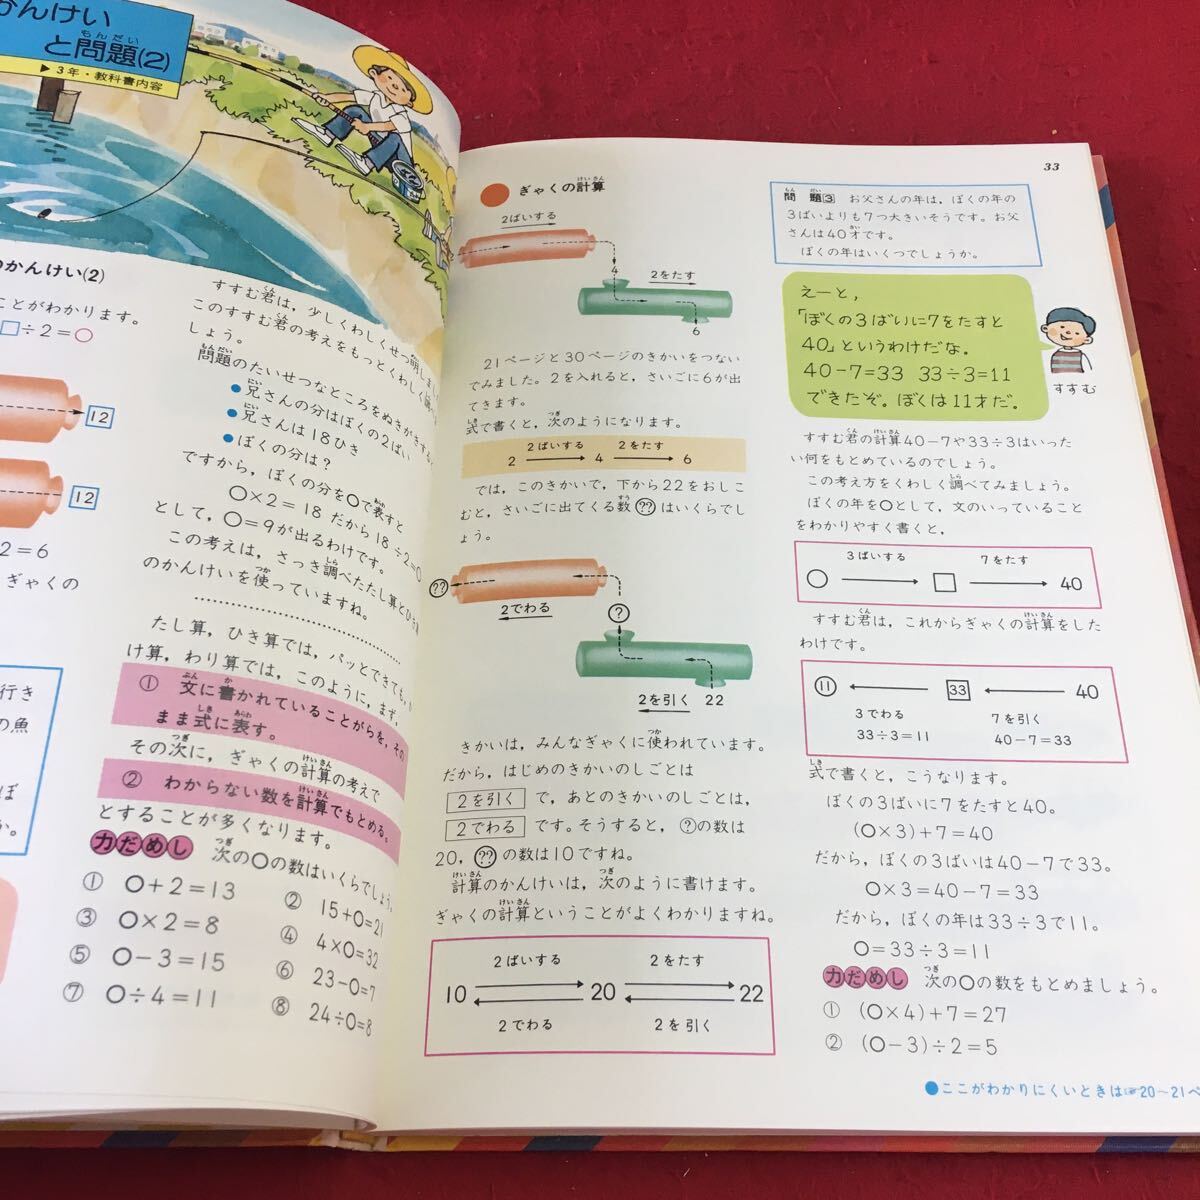 かんけい
と問題(2)
もんだい
▶3年・教科書内容
のかんけい(2)
ことがわかります。
□÷2=○
12
12
2=6
ぎゃくの
行き
の魚
ぼ
か。
すすむ君は，少しくわしくせつ明しまし
このすすむ君の考えをもっとくわしく調べ
しょう。
問題のたいせつなところをぬきがきする
●兄さんの分はぼくの2ばい
●兄さんは18ひき
●ぼくの分は？
ですから，ぼくの分を○で表すと
○×2=18 だから18÷2=○
として，○=9が出るわけです。
この考えは，さっき調べたたし算とひき算
のかんけいを使っていますね。
たし算，ひき算では，パッとできても，か
け算，わり算では，このように，まず，
① 文に書かれていることがらを，その
まま式に表す。
その次に，ぎゃくの計算の考えで
② わからない数を計算でもとめる。
とすることが多くなります。
力だめし 次の○の数はいくらでしょう。
① ○+2=13 ② 15+○=21
③ ○×2=8 ④ 4×○=32
⑤ ○-3=15 ⑥ 23-○=7
⑦ ○÷4=11 ⑧ 24÷○=8
33
ぎゃくの計算
2ばいする
2
4
2をたす
6
21ページと30ページのきかいをつない
でみました。2を入れると，さいごに6が出
てきます。
式で書くと，次のようになります。
2ばいする 2をたす
2 → 4 → 6
では，このきかいで，下から22をおしこ
むと，さいごに出てくる数??はいくらでし
ょう。
??
2でわる
?
2を引く 22
きかいは，みんなぎゃくに使われています。
だから，はじめのきかいのしごとは
2を引く で，あとのきかいのしごとは，
2でわる です。そうすると，?の数は
20，??の数は10ですね。
計算のかんけいは，次のように書けます。
ぎゃくの計算ということがよくわかりますね。
2ばいする 2をたす
10 20 22
2でわる 2を引く
問題3 お父さんの年は，ぼくの年の
3ばいよりも7つ大きいそうです。お父
さんは40才です。
ぼくの年はいくつでしょうか。
えーと，
「ぼくの3ばいに7をたすと
40」というわけだな。
40-7=33 33÷3=11
できたぞ。ぼくは11才だ。
すすむ
すすむ君の計算40-7や33÷3はいった
い何をもとめているのでしょう。
この考え方をくわしく調べてみましょう。
ぼくの年を○として，文のいっていること
をわかりやすく書くと，
3ばいする 7をたす
○ → □ → 40
すすむ君は，これからぎゃくの計算をした
わけです。
⑪ ← 33 ← 40
3でわる 7を引く
33÷3=11 40-7=33
式で書くと，こうなります。
ぼくの3ばいに7をたすと40。
(○×3)+7=40
だから，ぼくの3ばいは40-7で33。
○×3=40-7=33
だから，ぼくの年は33÷3で11。
○=33÷3=11
力だめし 次の○の数をもとめましょう。
① (○×4)+7=27
② (○-3)÷2=5
●ここがわかりにくいときは☞20〜21ペ